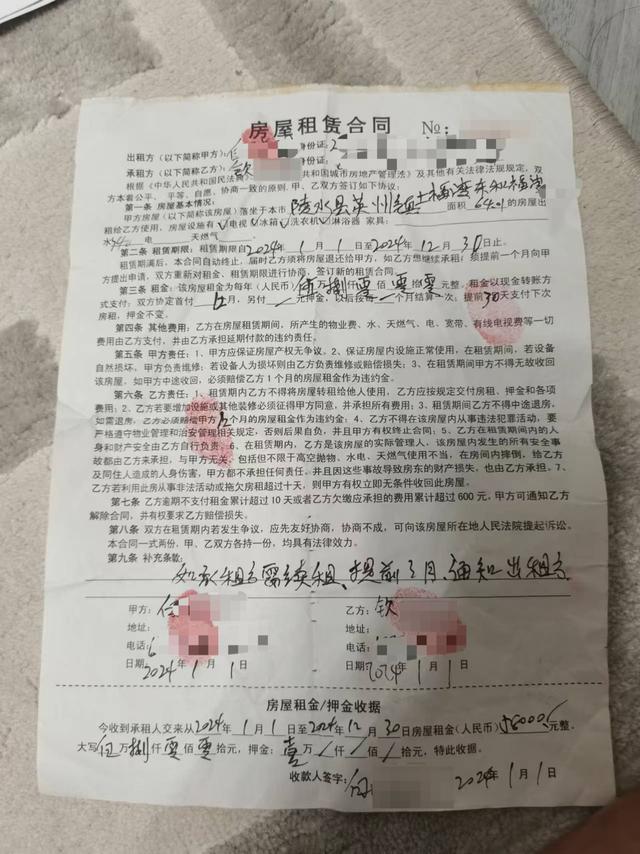 房屋租赁合同 №:
出租方（以下简称甲方）: 身份证:
承租方（以下简称乙方）: 钦 身份证:
根据《中华人民共和国民法典》 共和国城市房地产管理法》及其他有关法律法规规定，双
方本着公平、平等、自愿、协商一致的原则，甲、乙双方签订如下协议:
第一条 房屋基本情况:
甲方房屋（以下简称该房屋）落坐于本市 陵水县英州镇 面积 64.01 的房屋出
租给乙方使用，房屋设施有√电视√冰箱√洗衣机√淋浴器 家具:
水 电 天然气
第二条 租赁期限: 租赁期限自2024年1月1日至2024年12月30日止。
租赁期满后，本合同自动终止，届时乙方须将房屋退还给甲方，如乙方想继续承租，须提前一个月向甲
方提出申请，双方重新对租金、租赁期限进行协商，签订新的租赁合同。
第三条 租金: 该房屋租金为每年（人民币） 伍万捌仟零佰零拾零元整，租金以现金转账方
式支付: 双方协定首付12月，另付 元押金，以后按每 个月结算一次; 提前30天支付下次
房租，押金不变。
第四条 其他费用: 乙方在房屋租赁期间，所产生的物业费、水、天燃气、电、宽带、有线电视费等一切
费用由乙方支付，并由乙方承担延期付款的违约责任。
第五条 甲方责任: 1、甲方应保证房屋产权无争议。2、保证房屋内设施正常使用，在租赁期间，若设备
自然损坏，甲方负责维修: 若设备人为损坏则由乙方负责维修或赔偿损失; 3、在租赁期间甲方不得无故收回
该房屋。如甲方中途收回，必须赔偿乙方1个月的房屋租金作为违约金。
第六条 乙方责任: 1、租赁期内乙方不得将房屋转租给他人使用，乙方应按规定交付房租、押金和各项
费用; 2、乙方若要增加设施或其他装修必须征得甲方同意，并承担所有费用; 3、租赁期间乙方不得中途退房，
如需退房，乙方必须赔偿甲方 个月的房屋租金作为违约金: 4、乙方不得在该房屋内从事违法犯罪活动，要
严格遵守物业管理和治安管理相关规定，否则后果自负，并且甲方有权终止合同; 5、乙方在租赁期间内的人
身和财产安全由乙方自行负责; 6、在租赁期内，乙方是该房屋的实际管理人，该房屋内发生的所有安全事
故都由乙方来承担，与甲方无关，包括但不限于高空抛物、水电、天然气使用不当，在房间内摔倒，给乙方
及同住人造成的人身伤害，甲方都不承担任何责任，并且因这些事故导致房东的财产损失，也由乙方承担。7、
乙方若利用此房从事非法活动或拖欠房租超过十天，则甲方有权立即无条件收回此房屋。
第七条 乙方逾期不支付租金累计超过10天或者乙方欠缴应承担的费用累计超过600元，甲方可通知乙方
解除合同，并有权要求乙方赔偿损失。
第八条 双方在租赁期内若发生争议，应先友好协商，协商不成，可向该房屋所在地人民法院提起诉讼。
本合同一式两份，甲、乙双方各持一份，均具有法律效力。
第九条 补充条款:
如承租方需续租、提前3月、通知出租方
甲方: 任 乙方: 钦
地址: 地址:
电话: 电话:
日期: 2024年1月1日 日期: 2024年1月1日
房屋租金/押金收据
今收到承租人交来从2024年1月1日至2024年12月30日房屋租金（人民币）58000元整。
大写伍万捌仟零佰零拾元，押金: 壹万/仟/佰/拾元，特此收据。
收款人签字: 任 2024年1月1日